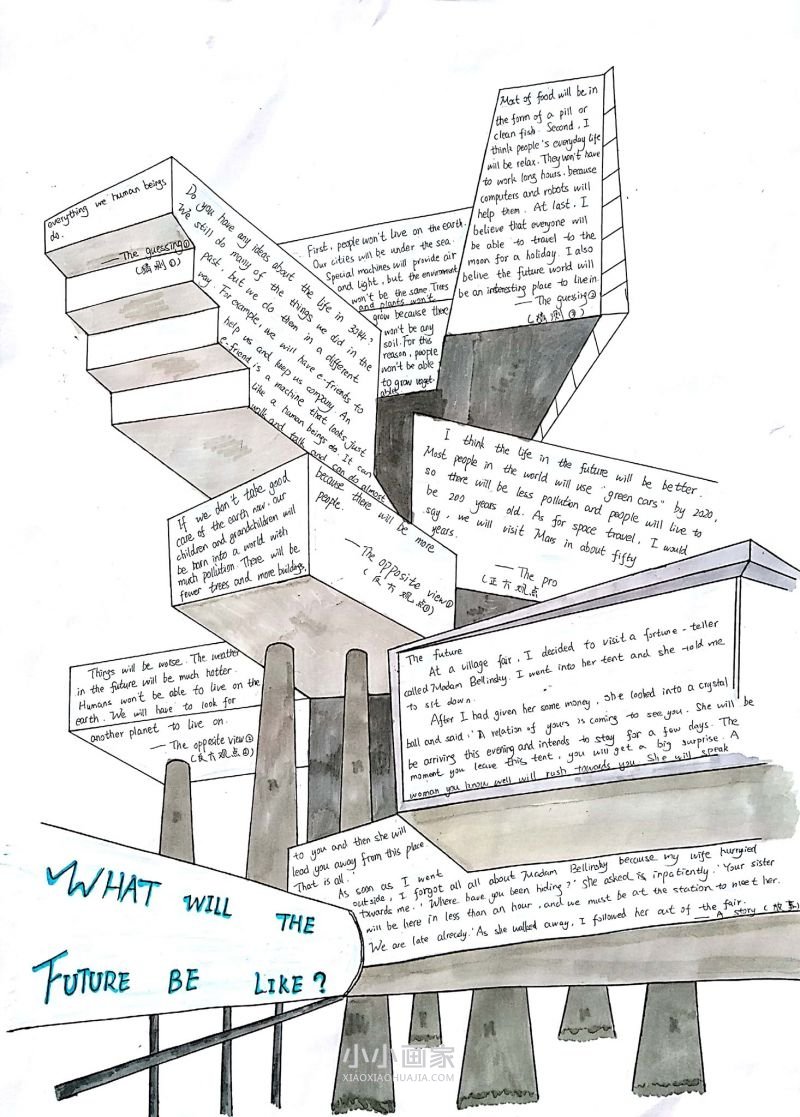 Do you have any ideas about the life in 3044?
We still do many of the things we did in the
past, but we do them in a different
way. For example, we will have e-friends to
help us and keep us company. An
e-friend is a machine that looks just
like a human beings do. It can
walk and talk and can do almost
everything we human beings
do.
— The guessing①
(猜测①)
First, people won't live on the earth.
Our cities will be under the sea.
Special machines will provide air
and light, but the environment
won't be the same. Trees
and plants won't
grow because there
won't be any
soil. For this
reason, people
won't be able
to grow veget-
ables
Most of food will be in
the form of a pill or
clean fish. Second, I
think people's everyday life
will be relax. They won't have
to work long hours, because
computers and robots will
help them. At last, I
believe that everyone will
be able to travel to the
moon for a holiday. I also
belive the future world will
be an interesting place to live in.
— The guesing②
(猜测②)
I think the life in the future will be better.
Most people in the world will use "green cars" by 2020,
so there will be less pollution and people will live to
be 200 years old. As for space travel, I would
say, we will visit Mars in about fifty
years.
— The pro
(正方观点
If we don't take good
care of the earth now, our
children and grandchildren will
be born into a world with
much pollution. There will be
fewer trees and more buildings
because there will be more
people.
— The opposite view①
(反方观点①)
Things will be worse. The weather
in the future will be much hotter.
Humans won't be able to live on the
earth. We will have to look for
another planet to live on.
— The opposite view②
(反方观点②)
The future
At a village fair, I decided to visit a fortune-teller
called Madam Bellinsky. I went into her tent and she told me
to sit down.
After I had given her some money, she looked into a crystal
ball and said: 'A relation of yours is coming to see you. She will be
be arriving this evening and intends to stay for a few days. The
moment you leave this tent, you will get a big surprise. A
woman you know well will rush towards you. She will speak
to you and then she will
lead you away from this place
That is all.'
As soon as I went
outside, I forgot all all about Madam Bellinsky because my wife hurryied
towards me. 'Where have you been hiding?' She asked is inpatiently. 'Your sister
will be here in less than an hour, and we must be at the station to meet her.
We are late already.' As she walked away, I followed her out of the fair.
— A story (故事)
WHAT WILL THE
FUTURE BE LIKE?
小小画家
XIAOXIAOHUAJIA.COM